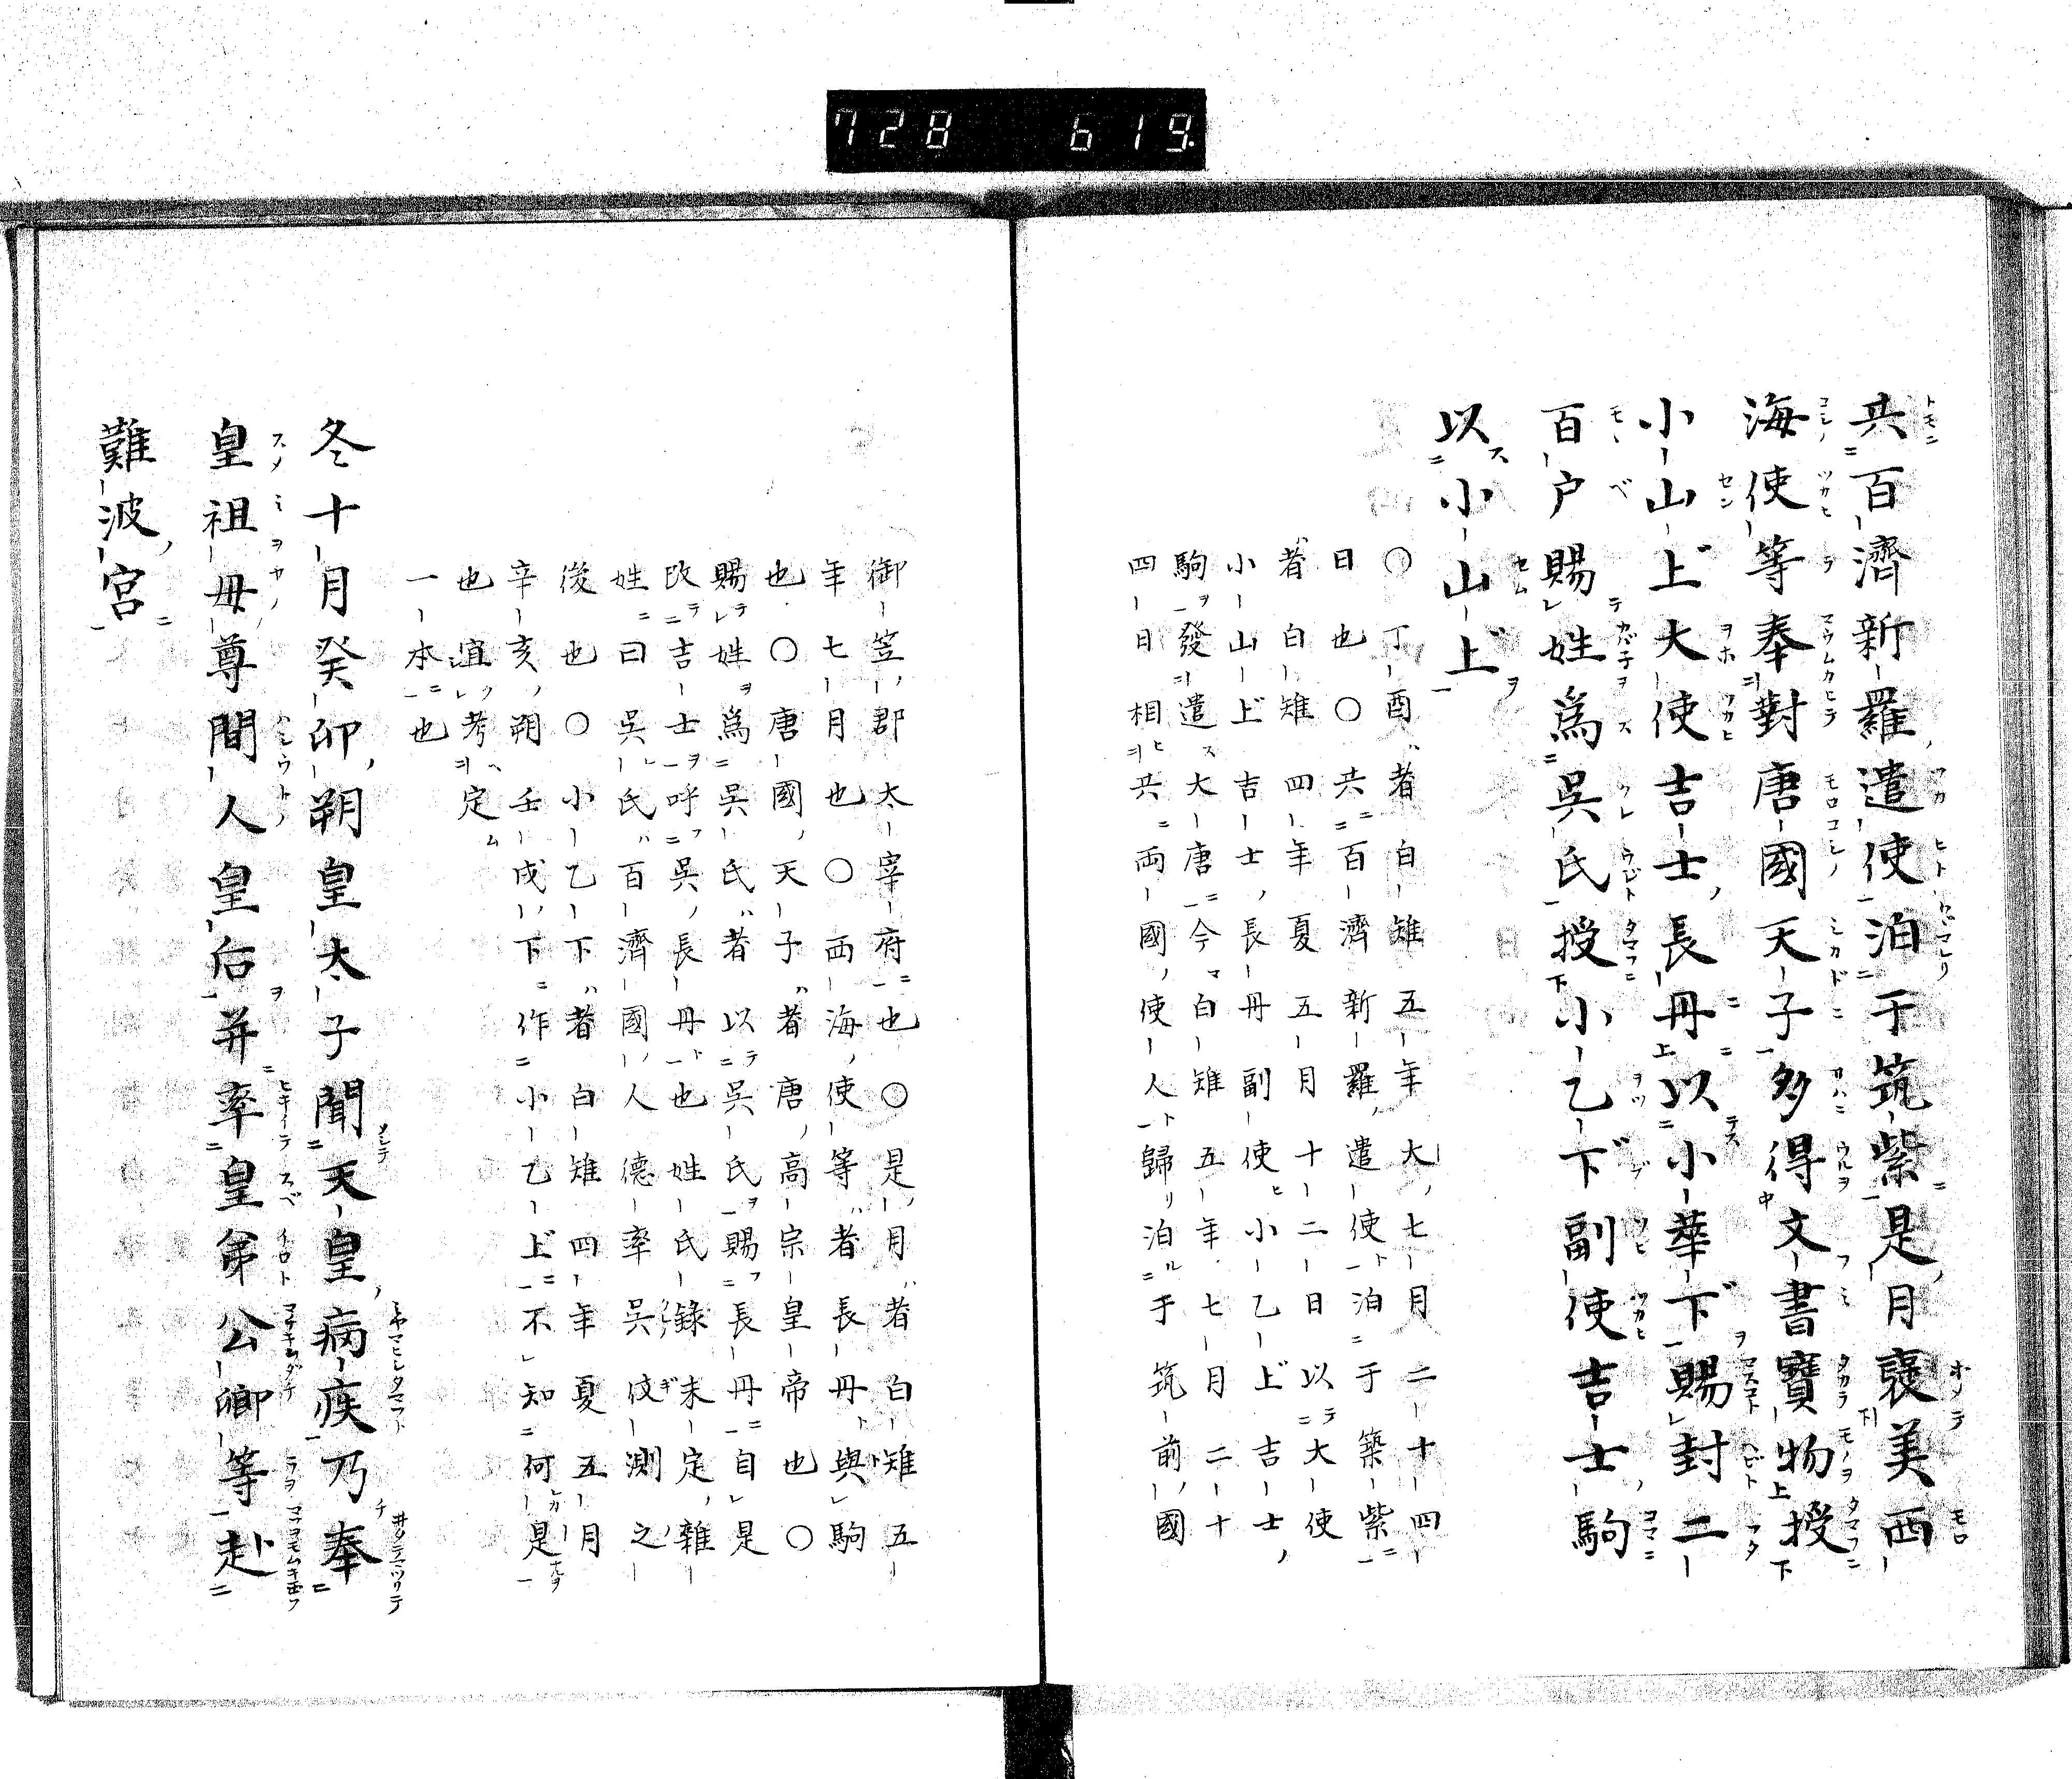 728 619
共百濟新羅遣使泊于筑紫是月襃美西
海使等奉對唐國天子多得文書寶物授
小山上大使吉士長丹以小華下賜封二
百戸賜姓爲呉氏授小乙下副使吉士駒
以小山上
〇丁酉者白雉五年大七月二十四
日也〇共百濟新羅遣使泊于築紫
者白雉四年夏五月十二日以大使
小山上吉士長丹副使小乙上吉士
駒發遣大唐今白雉五年七月二十
四日相共両國使人歸泊于筑前國
御笠郡太宰府也〇是月者白雉五
年七月也〇西海使等者長丹與駒
也〇唐國天子者唐高宗皇帝也〇
賜姓爲呉氏者以呉氏賜長丹自是
改吉士呼呉長丹也姓氏錄未定雜
姓曰呉氏百濟國人德率呉伎測之
後也〇小乙下者白雉四年夏五月
辛亥朔壬戌下作小乙上不知何是
也宜考定
一本也
冬十月癸卯朔皇太子聞天皇病疾乃奉
皇祖母尊間人皇后并率皇弟公卿等赴
難波宮